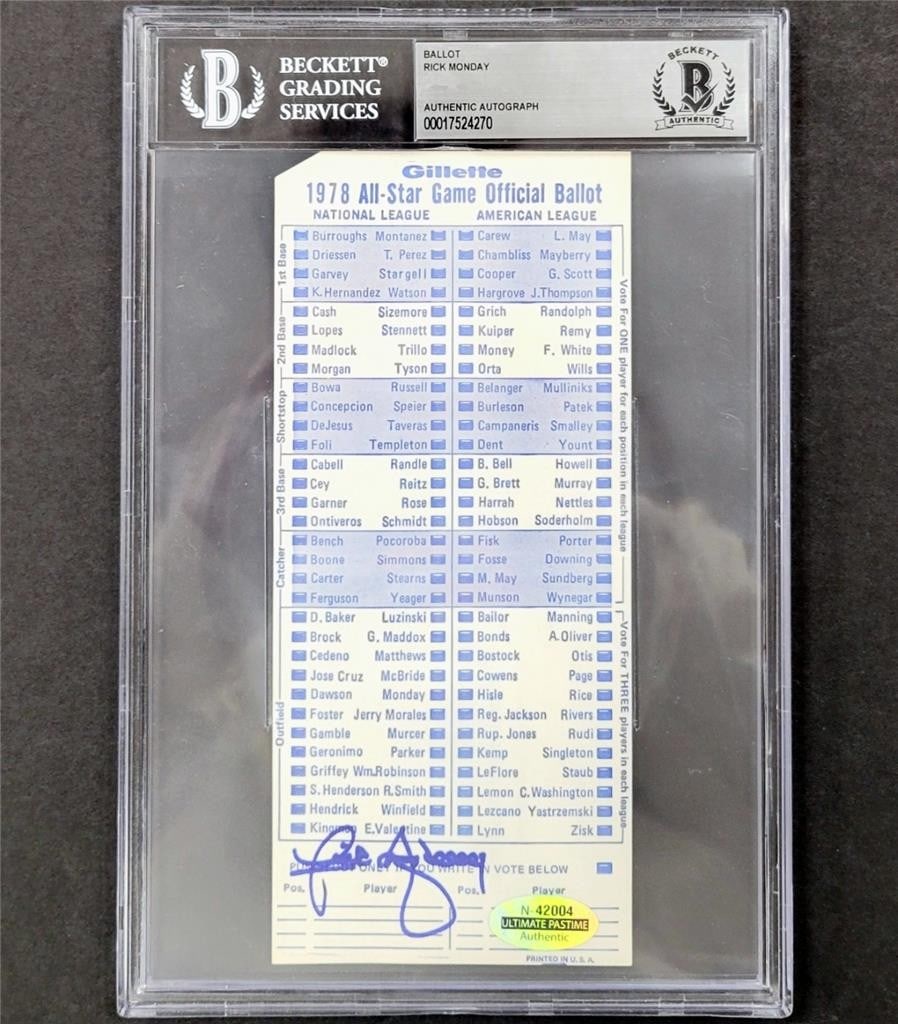 BECKETT®
GRADING
SERVICES
BALLOT
RICK MONDAY
AUTHENTIC AUTOGRAPH
00017524270
BECKETT
B
AUTHENTIC
Gillette
1978 All-Star Game Official Ballot
NATIONAL LEAGUE AMERICAN LEAGUE
1st Base
Burroughs Montanez Carew L. May
Driessen T. Perez Chambliss Mayberry
Garvey Stargell Cooper G. Scott
K. Hernandez Watson Hargrove J.Thompson
2nd Base
Cash Sizemore Grich Randolph
Lopes Stennett Kuiper Remy
Madlock Trillo Money F. White
Morgan Tyson Orta Wills
Shortstop
Bowa Russell Belanger Mulliniks
Concepcion Speier Burleson Patek
DeJesus Taveras Campaneris Smalley
Foli Templeton Dent Yount
3rd Base
Cabell Randle B. Bell Howell
Cey Reitz G. Brett Murray
Garner Rose Harrah Nettles
Ontiveros Schmidt Hobson Soderholm
Catcher
Bench Pocoroba Fisk Porter
Boone Simmons Fosse Downing
Carter Stearns M. May Sundberg
Ferguson Yeager Munson Wynegar
Vote For ONE player for each position in each league
Outfield
D. Baker Luzinski Bailor Manning
Brock G. Maddox Bonds A. Oliver
Cedeno Matthews Bostock Otis
Jose Cruz McBride Cowens Page
Dawson Monday Hisle Rice
Foster Jerry Morales Reg. Jackson Rivers
Gamble Murcer Rup. Jones Rudi
Geronimo Parker Kemp Singleton
Griffey Wm.Robinson LeFlore Staub
S. Henderson R.Smith Lemon C.Washington
Hendrick Winfield Lezcano Yastrzemski
Kingman E.Valentine Lynn Zisk
Vote For THREE players in each league
Rick Monday
ONLY IF YOU WRITE IN VOTE BELOW
Pos. Player Pos. Player
N-42004
ULTIMATE PASTIME
Authentic
PRINTED IN U. S. A.